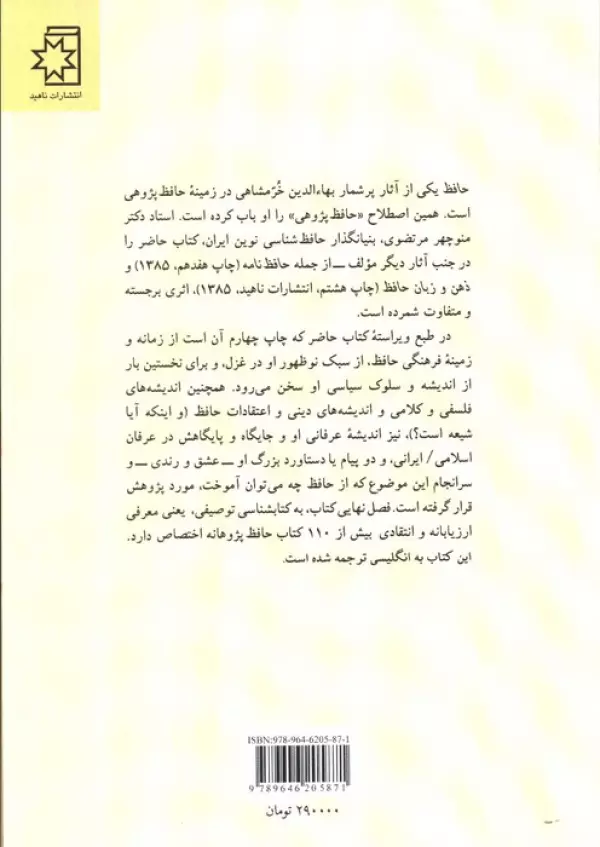 انتشارات ناهید
حافظ یکی از آثار پرشمار بهاءالدین خُرّمشاهی در زمینهٔ حافظ‌پژوهی
است. همین اصطلاح «حافظ‌پژوهی» را او باب کرده است. استاد دکتر
منوچهر مرتضوی، بنیانگذار حافظ‌شناسی نوین ایران، کتاب حاضر را
در جنب آثار دیگر مؤلف ــ از جمله حافظ‌نامه (چاپ هفدهم، ۱۳۸۵) و
ذهن و زبان حافظ (چاپ هشتم، انتشارات ناهید، ۱۳۸۵)، اثری برجسته
و متفاوت شمرده است.
در طبع ویراستهٔ کتاب حاضر که چاپ چهارم آن است از زمانه و
زمینهٔ فرهنگی حافظ، از سبک نوظهور او در غزل، و برای نخستین بار
از اندیشه و سلوک سیاسی او سخن می‌رود. همچنین اندیشه‌های
فلسفی و کلامی و اندیشه‌های دینی و اعتقادات حافظ (و اینکه آیا
شیعه است؟)، نیز اندیشهٔ عرفانی او و جایگاه و پایگاهش در عرفان
اسلامی/ ایرانی، و دو پیام یا دستاورد بزرگ او ــ عشق و رندی ــ و
سرانجام این موضوع که از حافظ چه می‌توان آموخت، مورد پژوهش
قرار گرفته است. فصل نهایی کتاب، به کتابشناسی توصیفی، یعنی معرفی
ارزیابانه و انتقادی بیش از ۱۱۰ کتاب حافظ پژوهانه اختصاص دارد.
این کتاب به انگلیسی ترجمه شده است.
ISBN:978-964-6205-87-1
9 789646 205871
۲۹۰۰۰۰ تومان